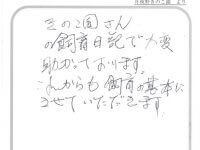 月夜野きのこ園 より
きのこ園さん
の飼育日記で大変
助かっております。
これからも飼育の基本に
させていただきます。